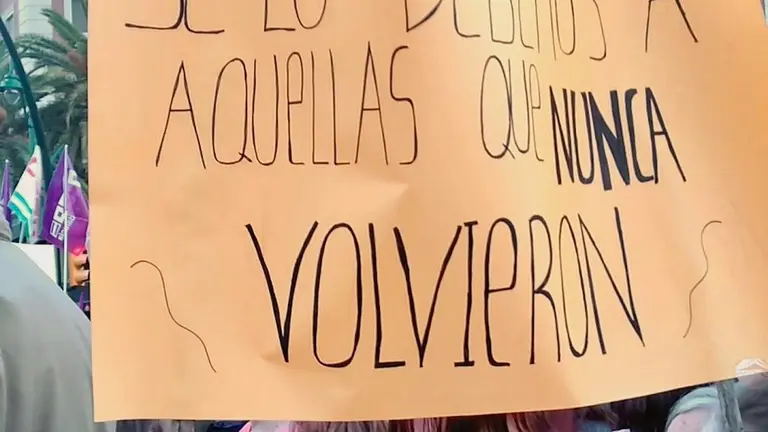 SE LO DEBEMOS A
AQUELLAS QUE NUNCA
VOLVIERON